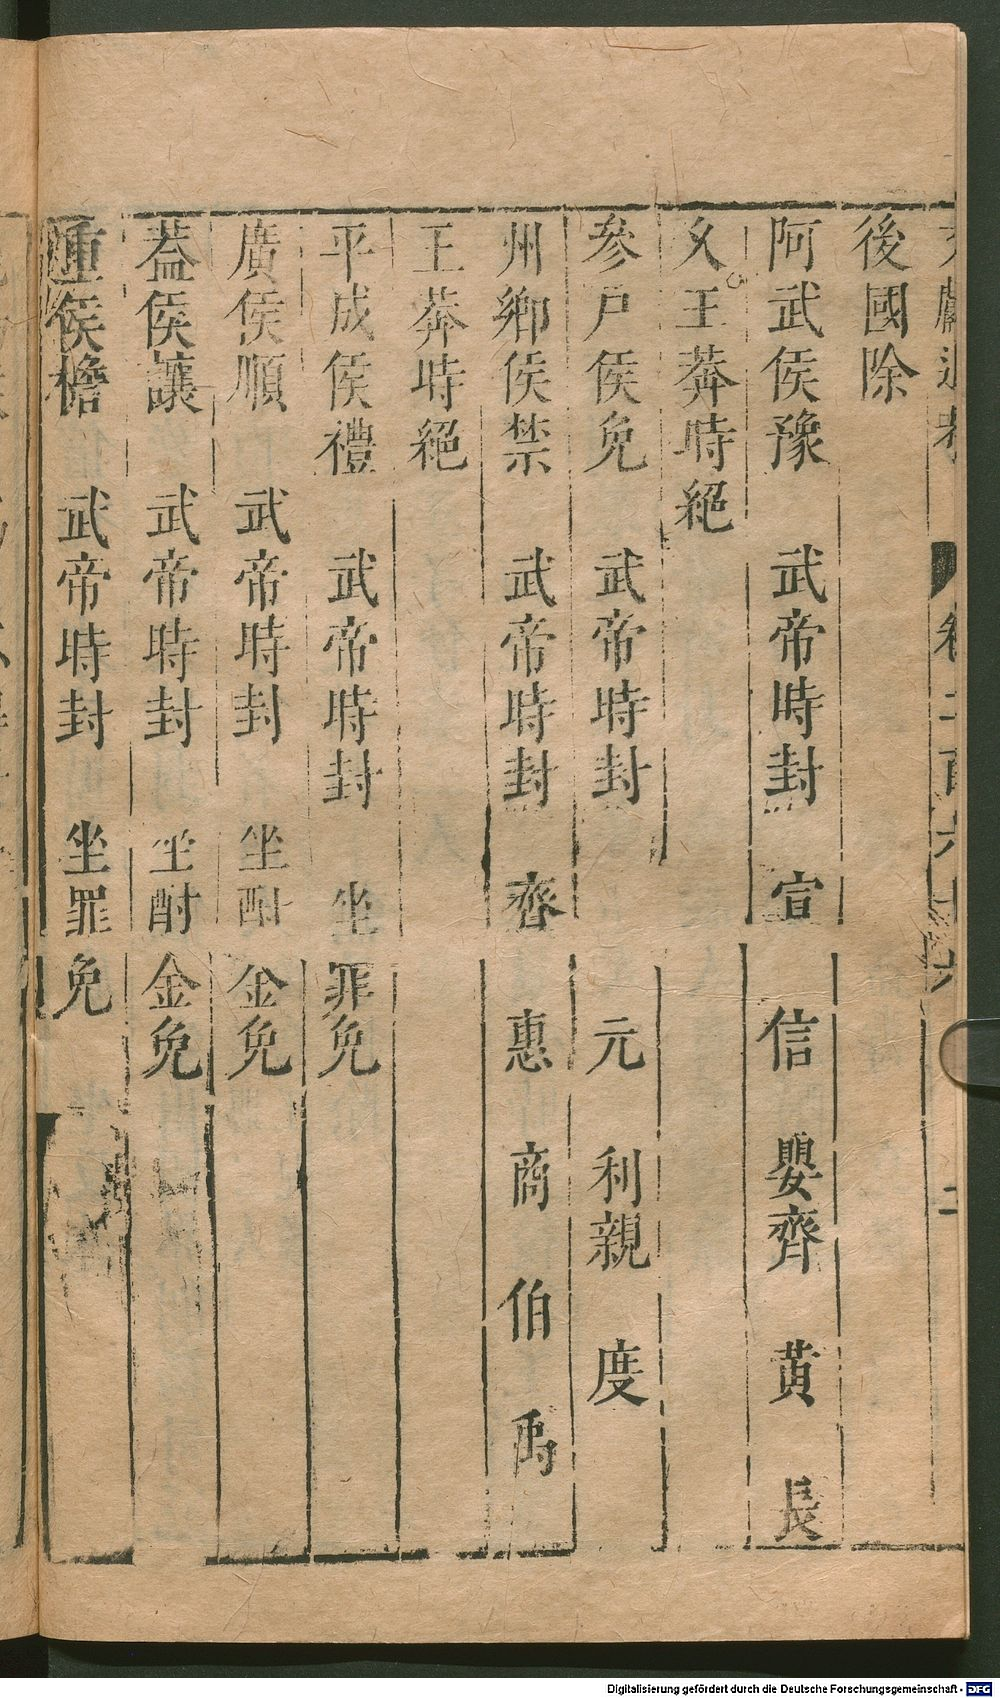 後國除
阿武侯豫 武帝時封 宣 信 嬰齊 黃 長
乂王莽時絕
參戶侯免 武帝時封 元 利親 度
州鄉侯禁 武帝時封 齊 惠 商 伯 禹
王莽時絕
平成侯禮 武帝時封 坐罪免
廣侯順 武帝時封 坐酎金免
蓋侯讓 武帝時封 坐酎金免
重侯檐 武帝時封 坐罪免
Digitalisierung gefördert durch die Deutsche Forschungsgemeinschaft - DFG